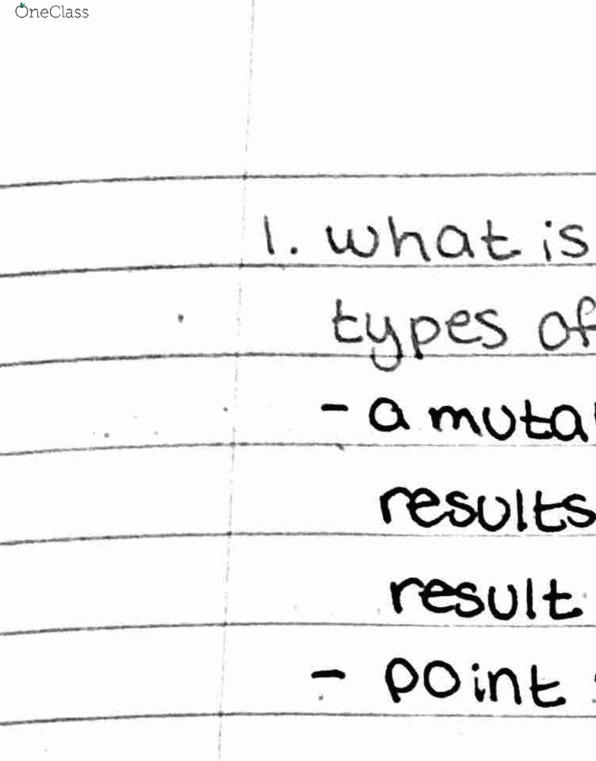 OneClass
1. what is
types of
- a muta
results
result
- point